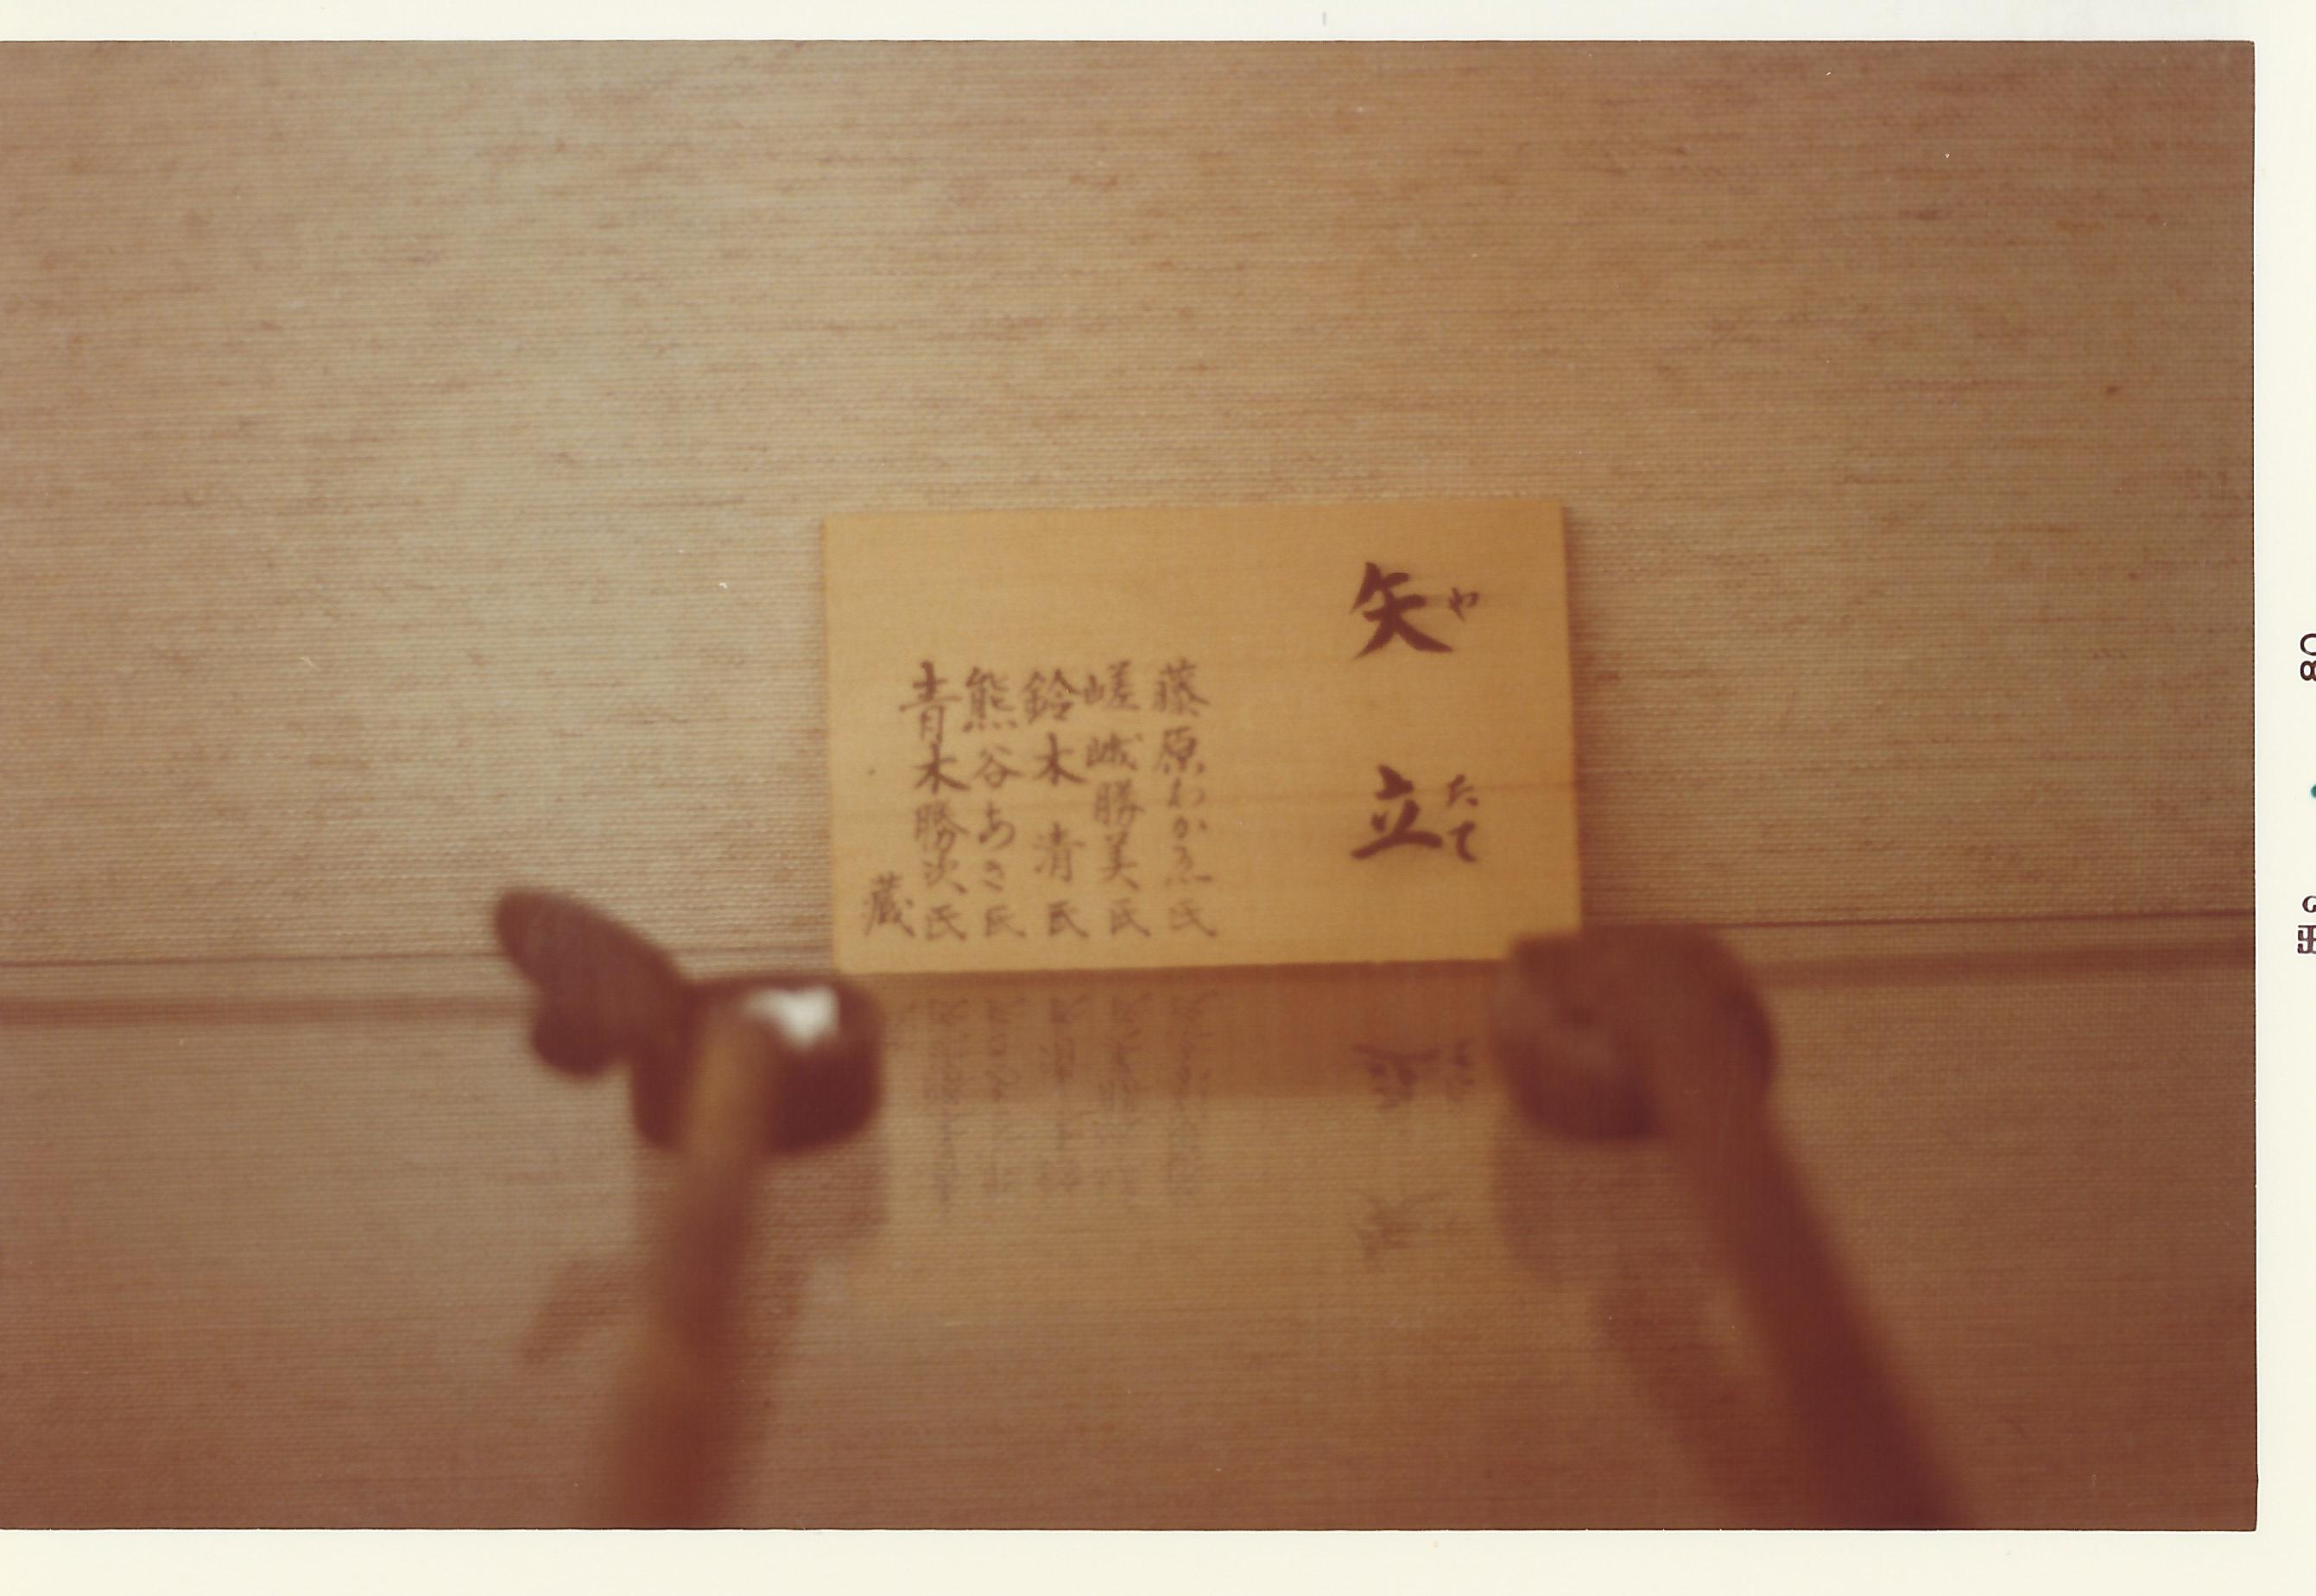 矢立
やたて
藤原わかゑ氏
嵯峨勝美氏
鈴木清氏
熊谷あさ氏
青木勝次氏
蔵